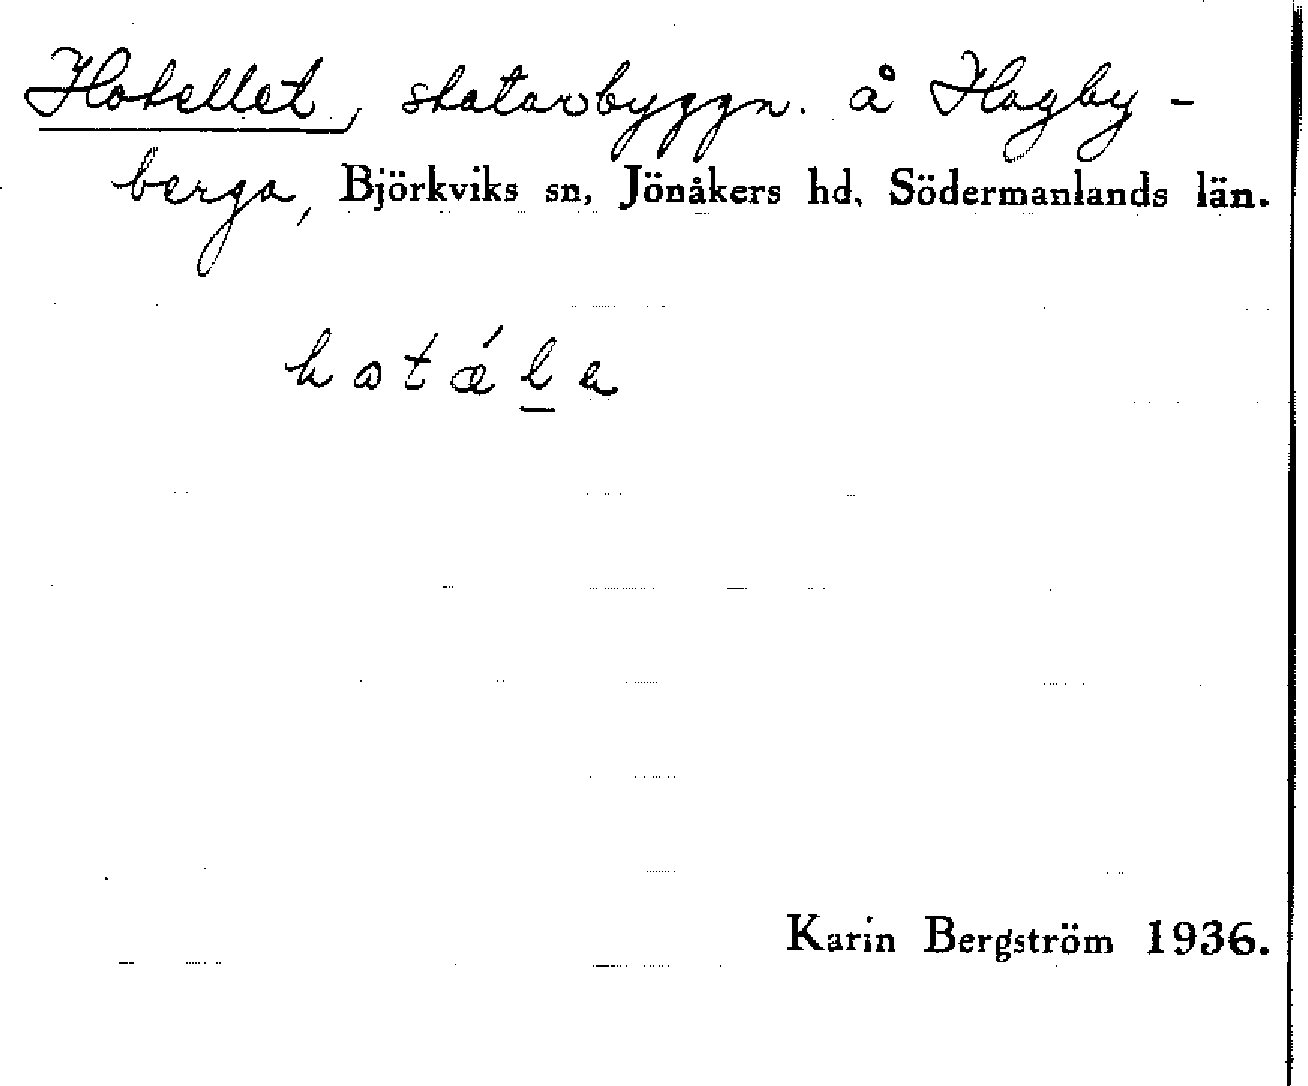 Hotellet, statarbyggn. å Hagby-
berga, Björkviks sn, Jönåkers hd, Södermanlands län.
hotǽl̲e
Karin Bergström 1936.